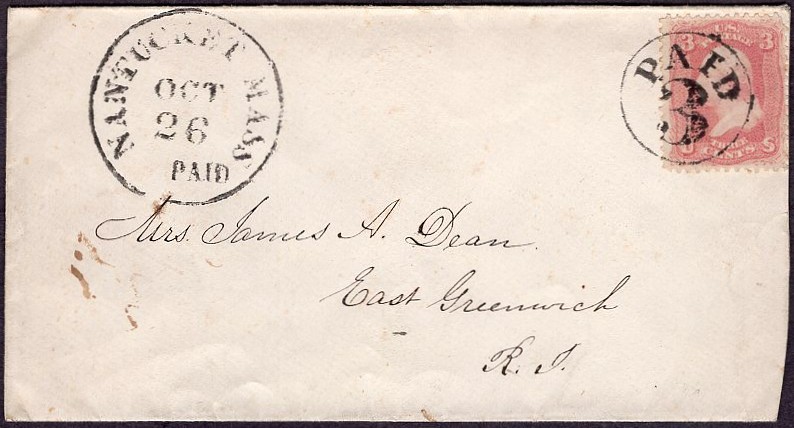 NANTUCKET MASS
OCT
26
PAID
U.S. POSTAGE
3 3
PAID
3
THREE CENTS
U S
Mrs. James A. Dean.
East Greenwich
R. I.